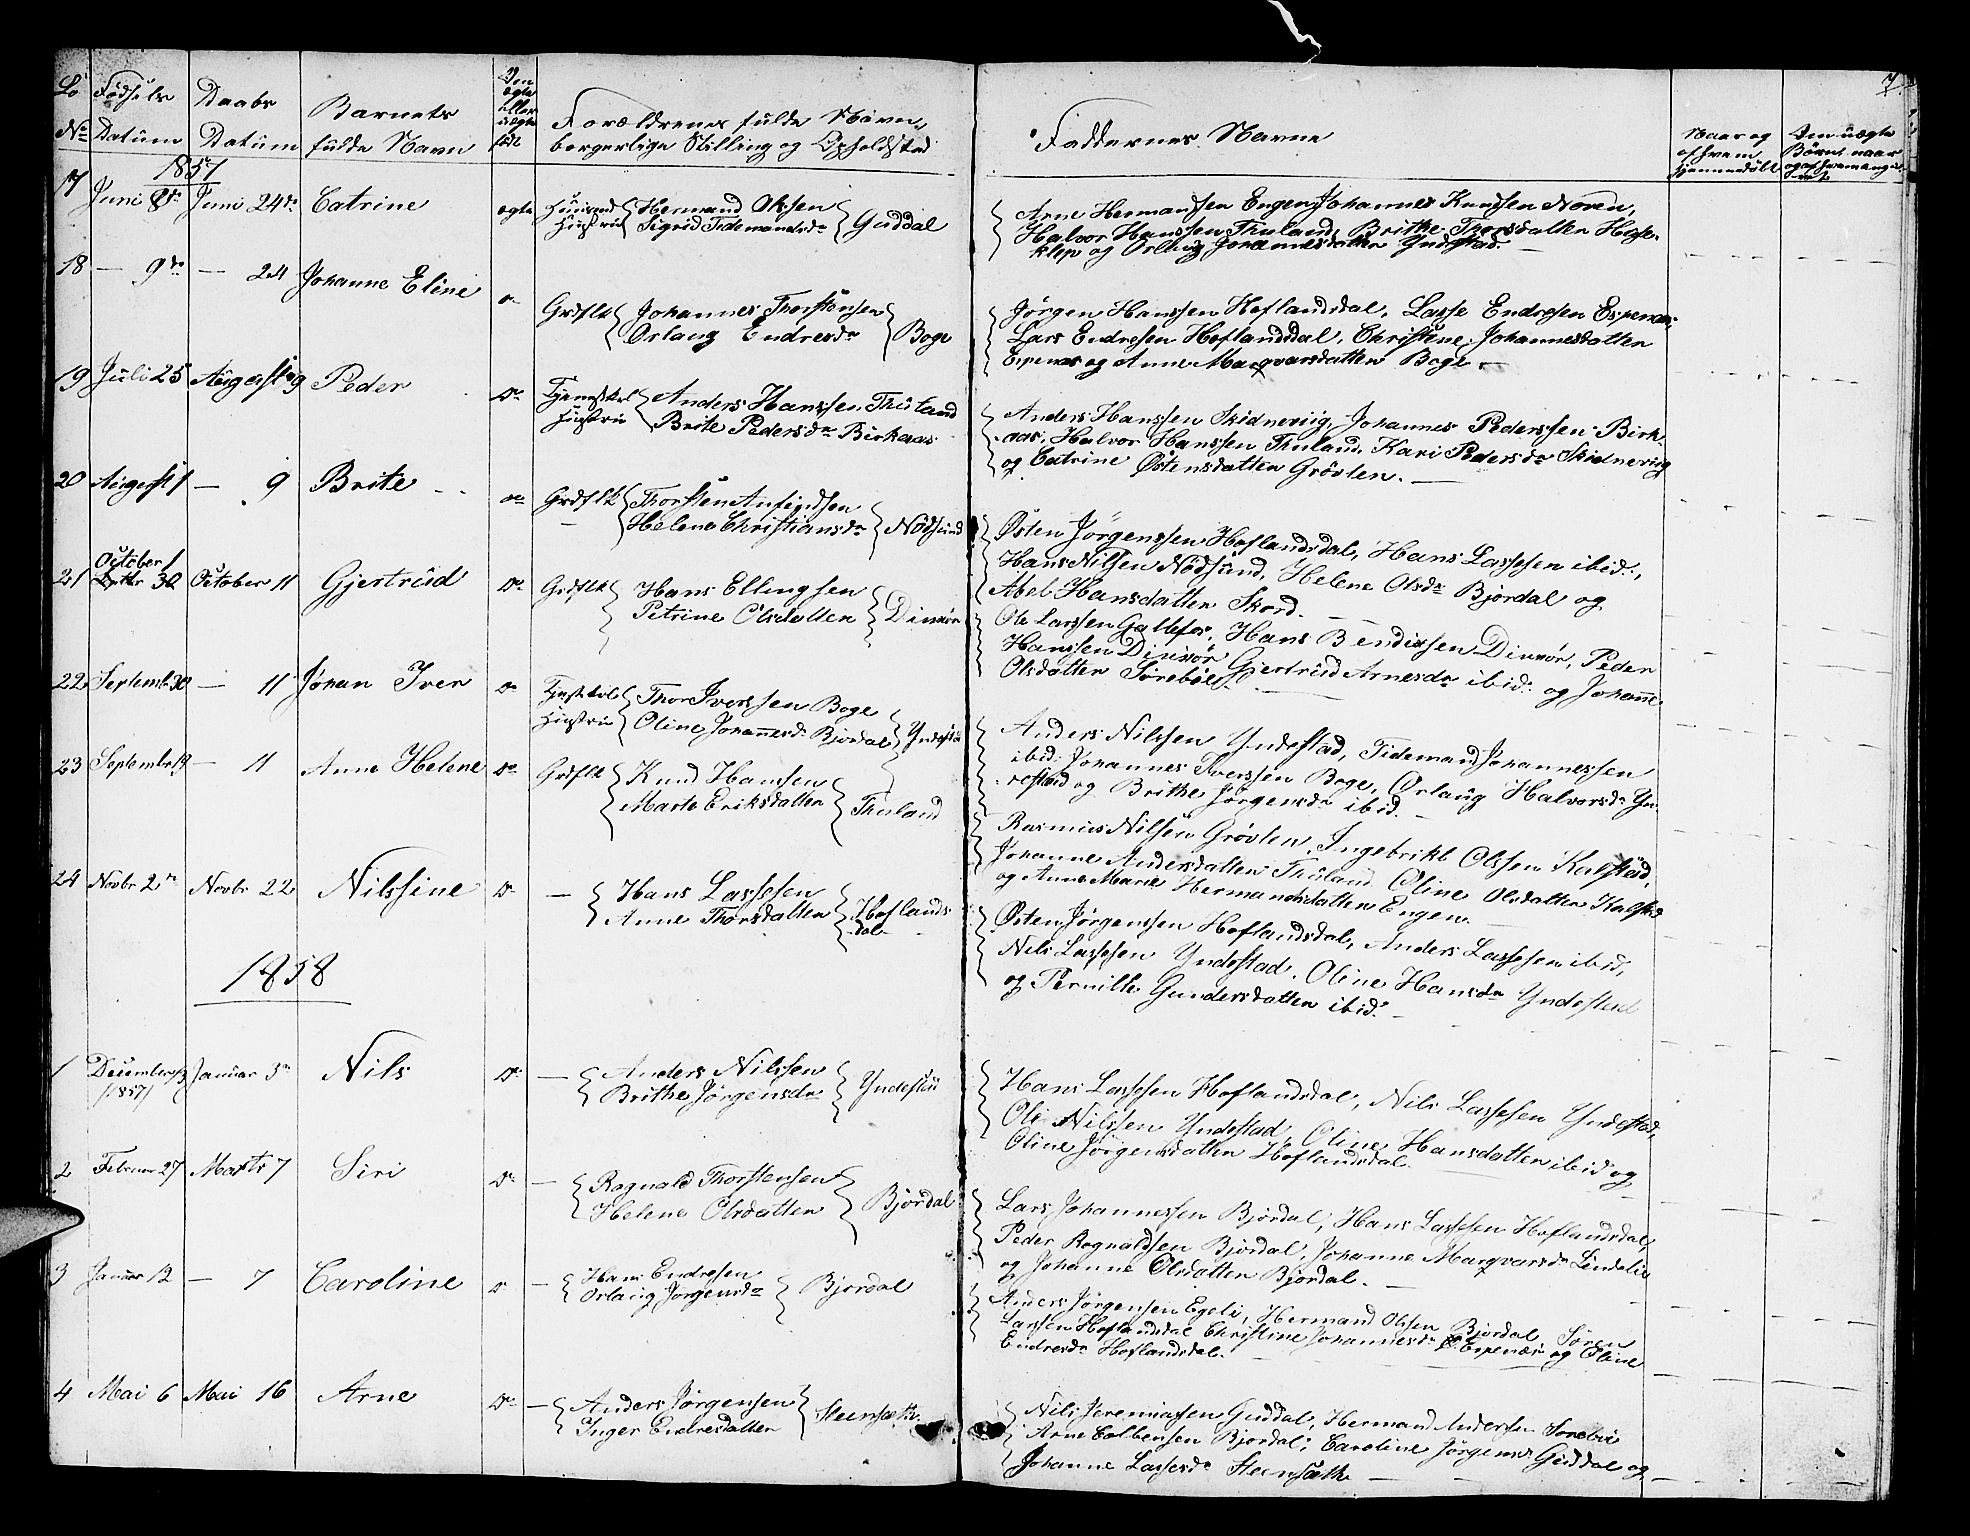 7
Lö No
Fødsels Datum
Daabs Datum
Barnets fulde Navn
Om ægte eller uægte født
Forældrenes fulde Navn, borgerlige Stilling og Opholdsted
Faddernes Navne
Naar og af hvem hjemmedøbt
Om uægte Børn, naar og af hvem angivet
1857
17 Juni 8de Juni 24de Catrine ægte Huusmd Hustrue Hermand Olssen Sigrid Tidemandsdr Guddal
Arne Hermanssen Engen, Johannes Knudssen Noven,
Halvor Hanssen Thuland, Brithe Thorsdatter Hesje-
klep og Orlaug Johannesdatter Yndestad. —
18 — 9de — 24 Johanne Eline do Grdflk Johannes Thorstensen Orlaug Endresdr Boge
Jørgen Hanssen Hoflandsdal, Lasse Endresen Espenæs,
Lars Endresen Hoflandsdal, Christine Johannesdatter
Espenæs og Anne Marqvarsdatter Boge. —
19 Juli 25 August 9 Peder do Tjenestkrl Hustrue Anders Hanssen Thuland Brite Pedersdr Birkaas
Anders Hanssen Skidneviig, Johannes Pederssen Birk-
aas, Halvor Hanssen Thuland, Kari Pedersdr Skidneviig
og Catrine Østensdatter Grøvlen. —
20 August 1 — 9 Brite do Grdflk Thorsten Anfindsen Helene Christiansdr Nødsund
Østen Jørgenssen Hoflandsdal, Hans Lassesen ibid.,
Hans Nilsen Nødsund, Helene Olsdr Bjordal og
Abel Hansdatter Skord. —
21 October 1 October 11 Gjertrud do Grdflk Hans Ellingsen Petrine Olsdatter Dinnør
Ole Larssen Gallefos, Hans Bendixsen Dinnør, Peder
Hanssen Dinnør, Gjertrud Arnesdr ibid. og Johanne
Olsdatter Sørebøe. —
22 Septemb. 30 — 11 Johan Iver do Tjenstkrl Hustrue Thor Iverssen Boge Oline Johannesdr Bjordal Yndestad
Anders Nilssen Yndestad, Tidemand Johannessen
ibid. Johannes Iverssen Boge, Orlaug Halvorsdr Yn-
destad og Brithe Jørgensdr ibid. —
23 September 19 — 11 Anne Helene do Grdflk Knud Hanssen Marte Eriksdatter Thuland
Rasmus Nilsen Grøvlen, Ingebrikt Olssen Kalstad,
Johanne Andersdatter Thuland, Oline Olsdatter Kalstad
og Anne Marie Hermandsdatter Engen. —
24 Novbr 2n Novbr 22 Nilssine do — Hans Lassesen Anne Thorsdatter Hoflands-dal
Østen Jørgenssen Hoflandsdal, Anders Lassesen ibid,
Nils Lassesen Yndestad. Oline Hansdr Yndestad
og Pernille Gundersdatter ibid. —
1858
1 December 13 /1857/ Januar 3n Nils do — Anders Nilssen Brithe Jørgensdr Yndestad
Hans Lassesen Hoflandsdal, Nils Lassesen Yndestad,
Ole Nilssen Yndestad, Oline Hansdatter ibid og
Oline Jørgensdatter Hoflandsdal. —
2 Februar 27 Marts 7 Siri do — Ragnald Thorstensen Helene Olsdatter Bjordal
Lars Johannessen Bjordal, Hans Lassesen Hoflandsdal,
Peder Ragnaldsen Bjordal, Johanne Marqvarsdr Lindelie
og Johanne Olsdatter Bjordal. —
3 Januar 12 — 7 Caroline do — Hans Endresen Orlaug Jørgensdr Bjordal
Anders Jørgensen Egeli, Hermand Olssen Bjordal, Søren
Larssen Hoflandsdal Christine Johannesdr Espenæs og Oline
Endresdr Hoflandsdal. —
4 Mai 6 Mai 16 Arne do — Anders Jørgensen Inger Endresdatter Steensæth
Nils Jeremiassen Guddal, Hermand Anderssen Sørebøe
Arne Colbensen Bjordal, Caroline Jørgensdr Guddal og
Johanne Lassesdr Steensæth —